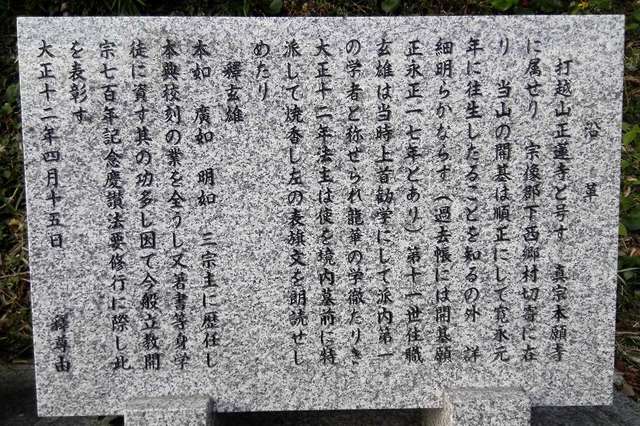 沿革
打越山正蓮寺と号す 真宗本願寺
に属せり 宗像郡下西郷村切寄に在
り 当山の開基は順正にして寛永元
年に往生したることを知るの外 詳
細明らかならす（過去帳には開基願
正永正一七年とあり）第十一世住職
玄雄は当時上首勧学にして派内第一
の学者と称せられ龍華の学徹たりき
大正十二年法主は使を境内墓前に特
派して焼香し左の表旗文を朗読せし
めたり
釋玄雄
本如 廣如 明如 三宗主に歴任し
本典校刻の業を全うし又著書等身学
徒に資す其の功多し因て今般立教開
宗七百年記念慶讃法要修行に際し此
を表彰す
大正十二年四月十五日
釋尊由